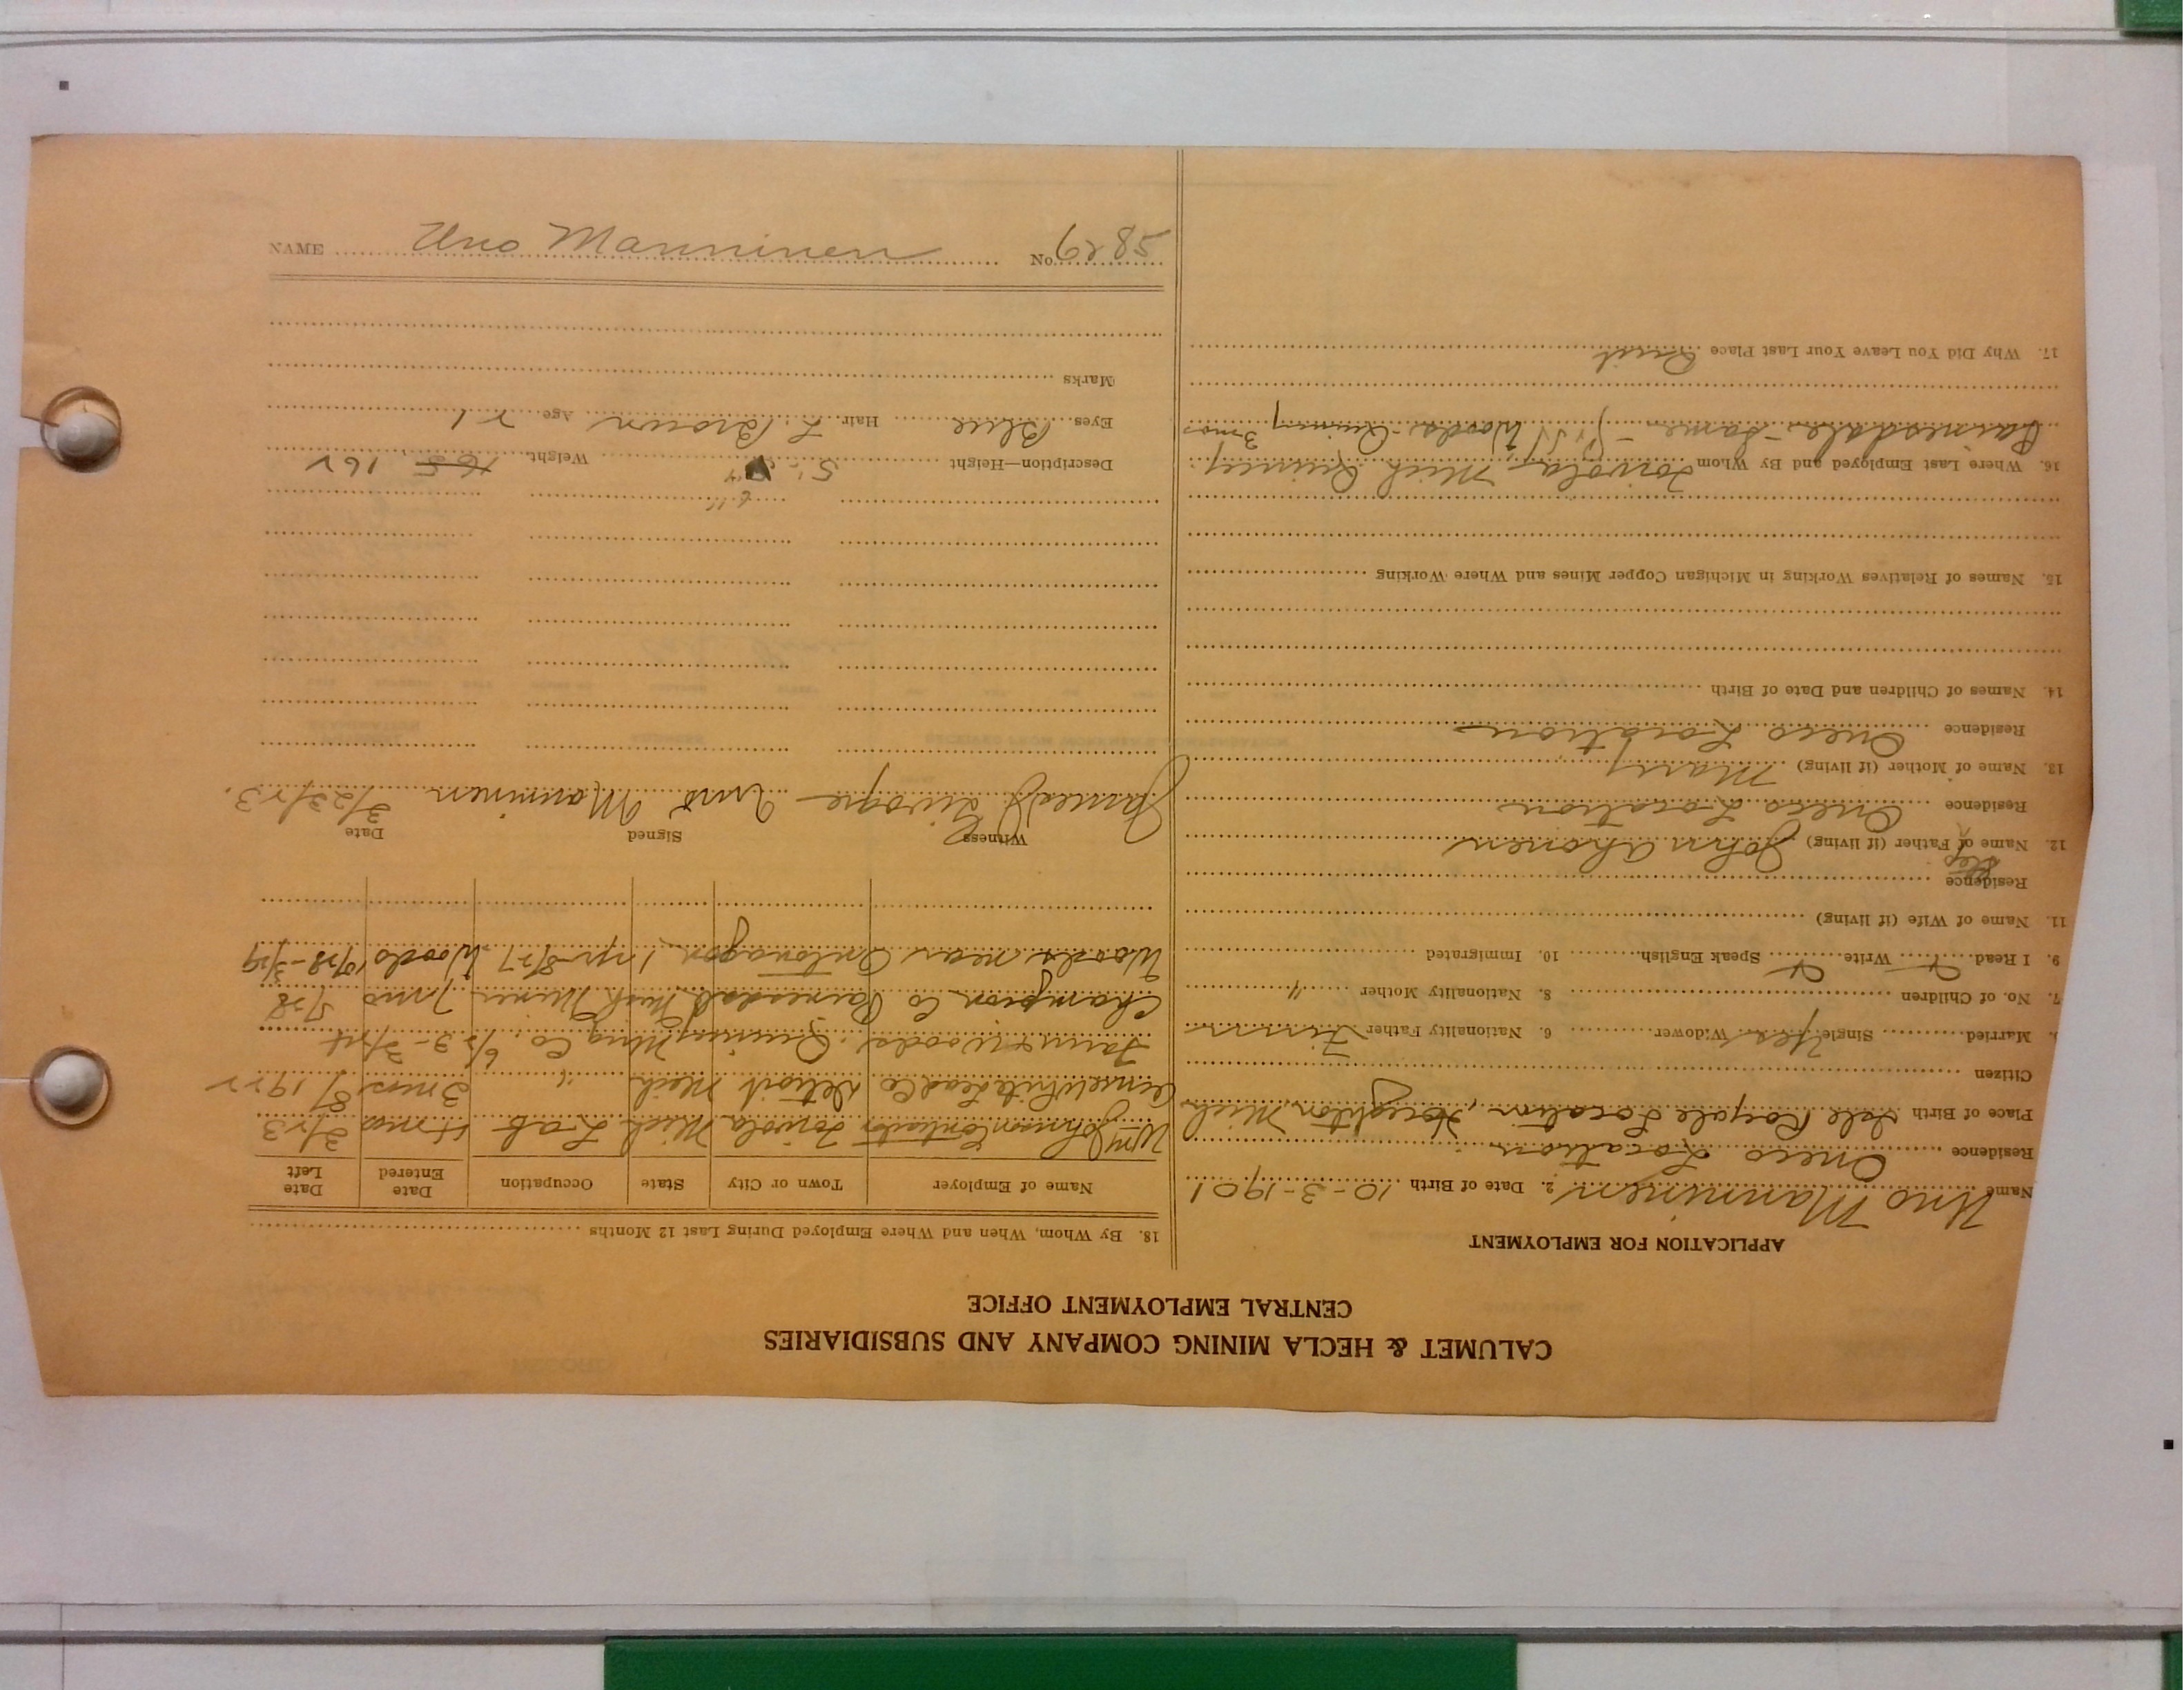 CALUMET & HECLA MINING COMPANY AND SUBSIDIARIES
CENTRAL EMPLOYMENT OFFICE
APPLICATION FOR EMPLOYMENT
Name Uno Manninen 2. Date of Birth 10-3-1901
Residence Oneco Location
Place of Birth Isle Royale Location, Houghton, Mich
Citizen
Married Single Yes Widower 6. Nationality Father Finn
7. No. of Children 8. Nationality Mother "
9. I Read Write Speak English 10. Immigrated
11. Name of Wife (if living)
Residence
Step
12. Name of Father (if living) John Ahonen
Residence Oneco Location
13. Name of Mother (if living) Mary
Residence Oneco Location
14. Names of Children and Date of Birth
15. Names of Relatives Working in Michigan Copper Mines and Where Working
16. Where Last Employed and By Whom Toivola, Mich Quincy
Painesdale - same - Woods - Quincy 3 mos
17. Why Did You Leave Your Last Place Quit
18. By Whom, When and Where Employed During Last 12 Months
Name of Employer Town or City State Occupation Date Entered Date Left
Wm Johnson Contractor Toivola Mich Lab 4 mos 3/23
White Lead Co Detroit Mich " 3 mos 8/1922
Woods Quincy Mng Co. 6/23-3/24
Champion Co Painesdale Mich Miner 7 mos 5/28
Woods near Ontonagon 1 yr 8/27 Woods 10/28-3/29
Witness Signed Date
James Uno Manninen 3/23/23.
6'11"
Description—Height 5' Weight 165 162
Eyes Blue Hair L. Brown Age 21
Marks
NAME Uno Manninen No. 6285